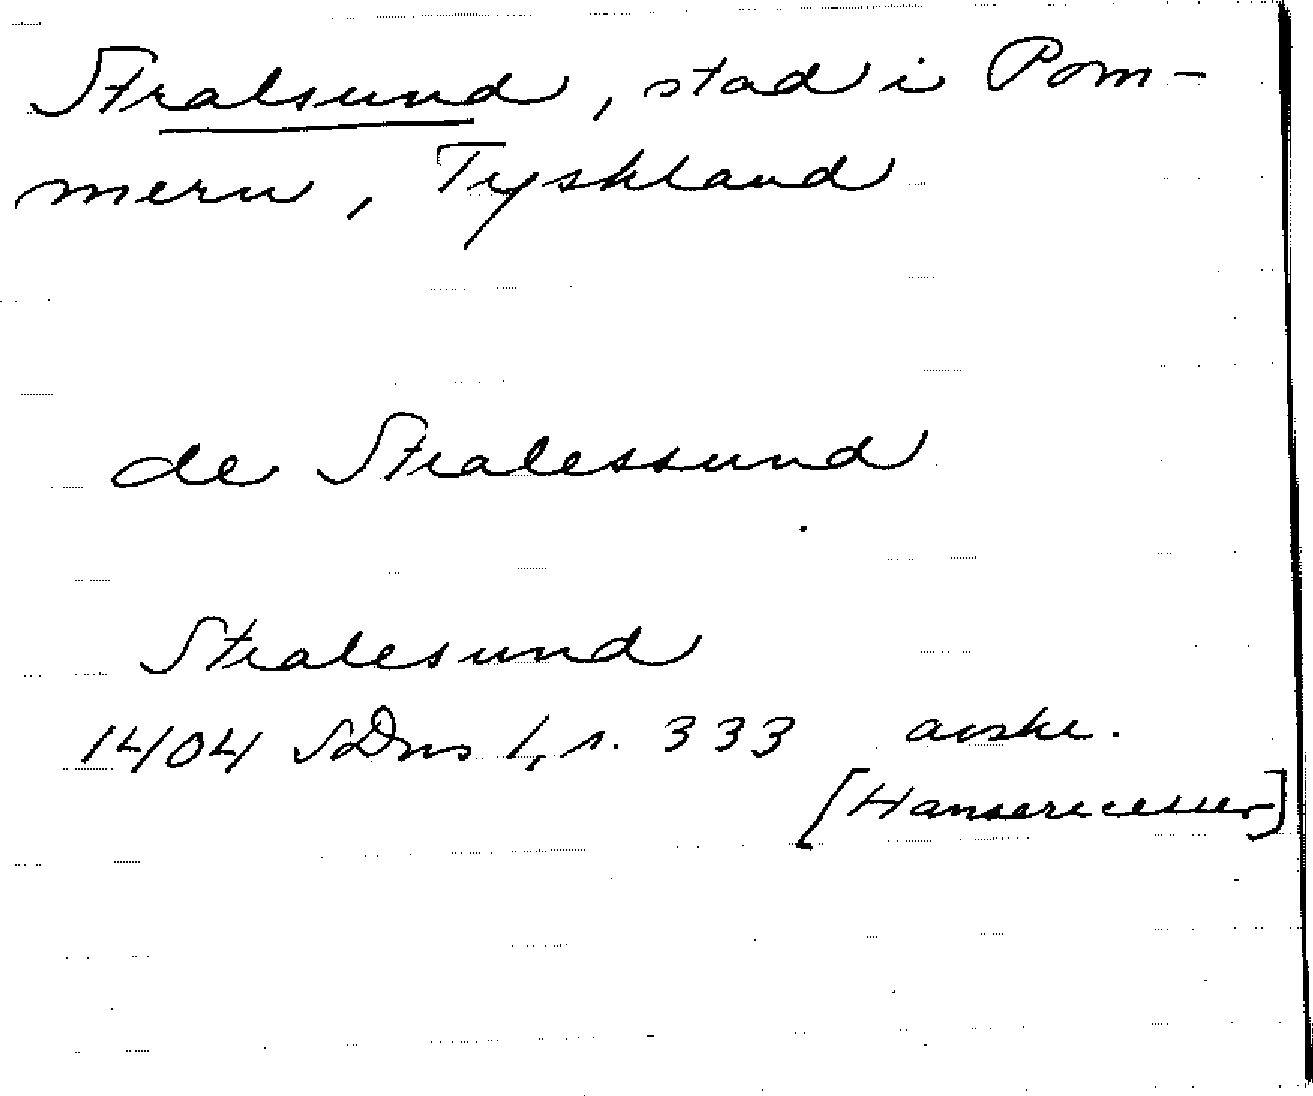 Stralsund, stad i Pom-
mern, Tyskland
de Stralessund
Stralesund
1404 SDns 1, s. 333 avskr.
[Hanserecesser]